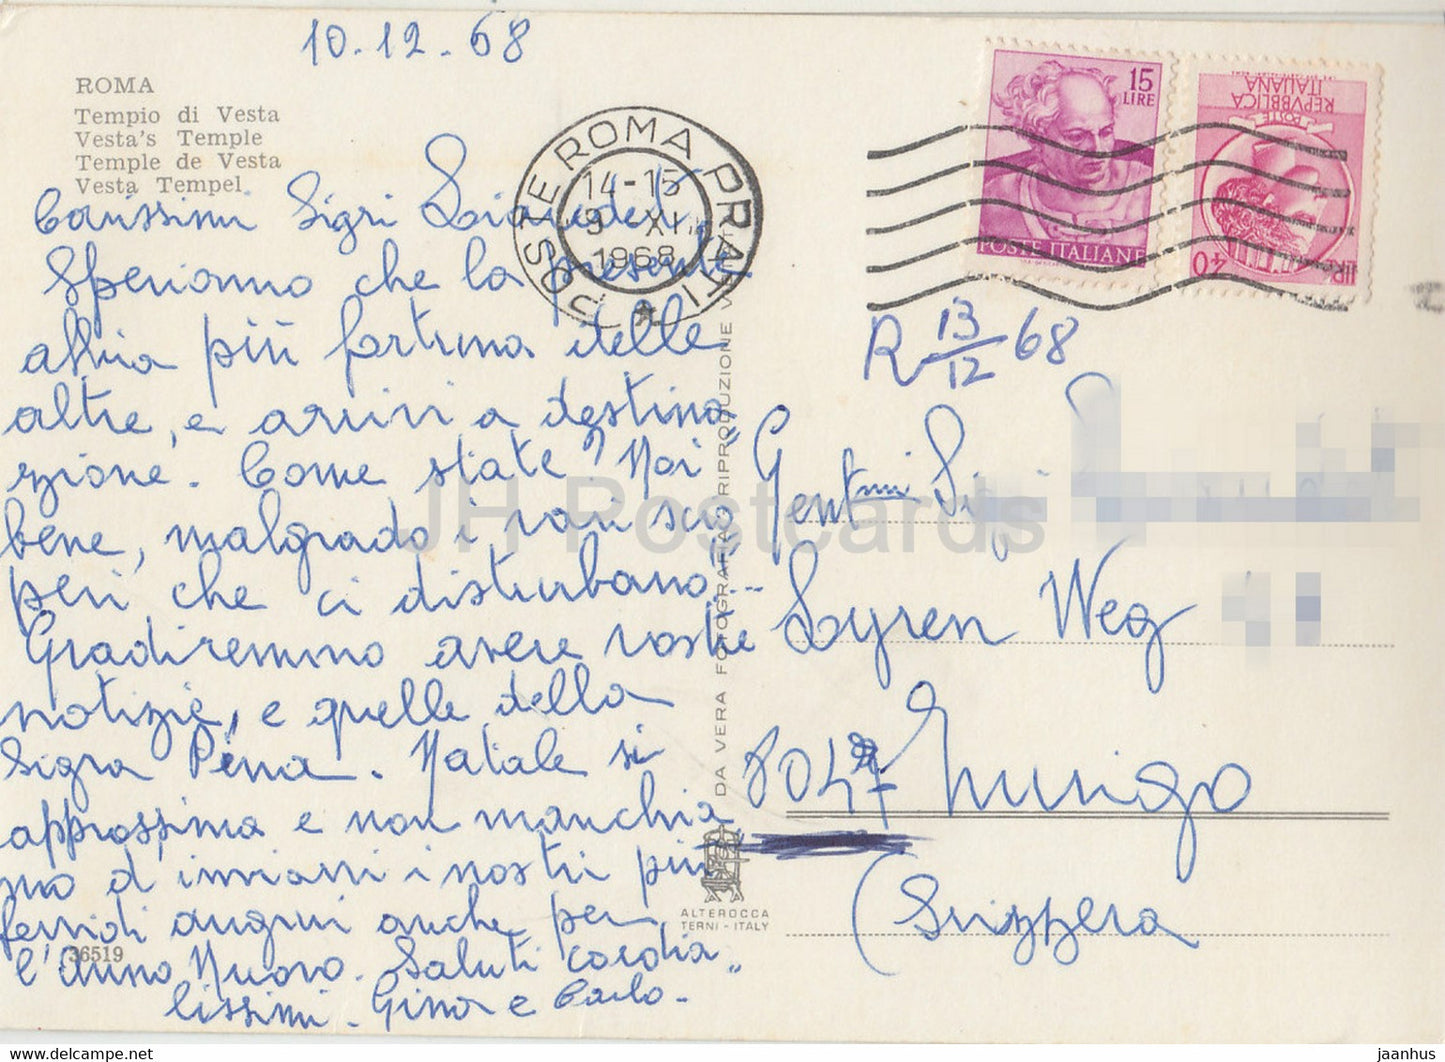 10.12.68
ROMA
Tempio di Vesta
Vesta's Temple
Temple de Vesta
Vesta Tempel
Carissimi Sigri
Speriamo che la presente
abbia più fortuna delle
altre, e arrivi a destina
zione. Come state? Noi
bene, malgrado i vari scio
peri che ci disturbano...
Gradiremmo avere vostre
notizie, e quelle della
Sigra Pina. Natale si
approssima e non manchia
mo d'inviarvi i nostri più
fervidi auguri anche per
l'Anno Nuovo. Saluti cordia„
lissimi. Gina e Carlo.
36519
POSTE ROMA PRATI
14-15
9 XII
1968
15
LIRE
POSTE ITALIANE
POSTE
REPVBBLICA
ITALIANA
LIRE 40
R 13/12 68
Gentmi Sigri
Loyren Weg
8047 Zurigo
(Svizzera
DA VERA FOTOGRAFIA RIPRODUZIONE
ALTEROCCA
TERNI - ITALY
JH Postcards
delcampe.net
jaanhus